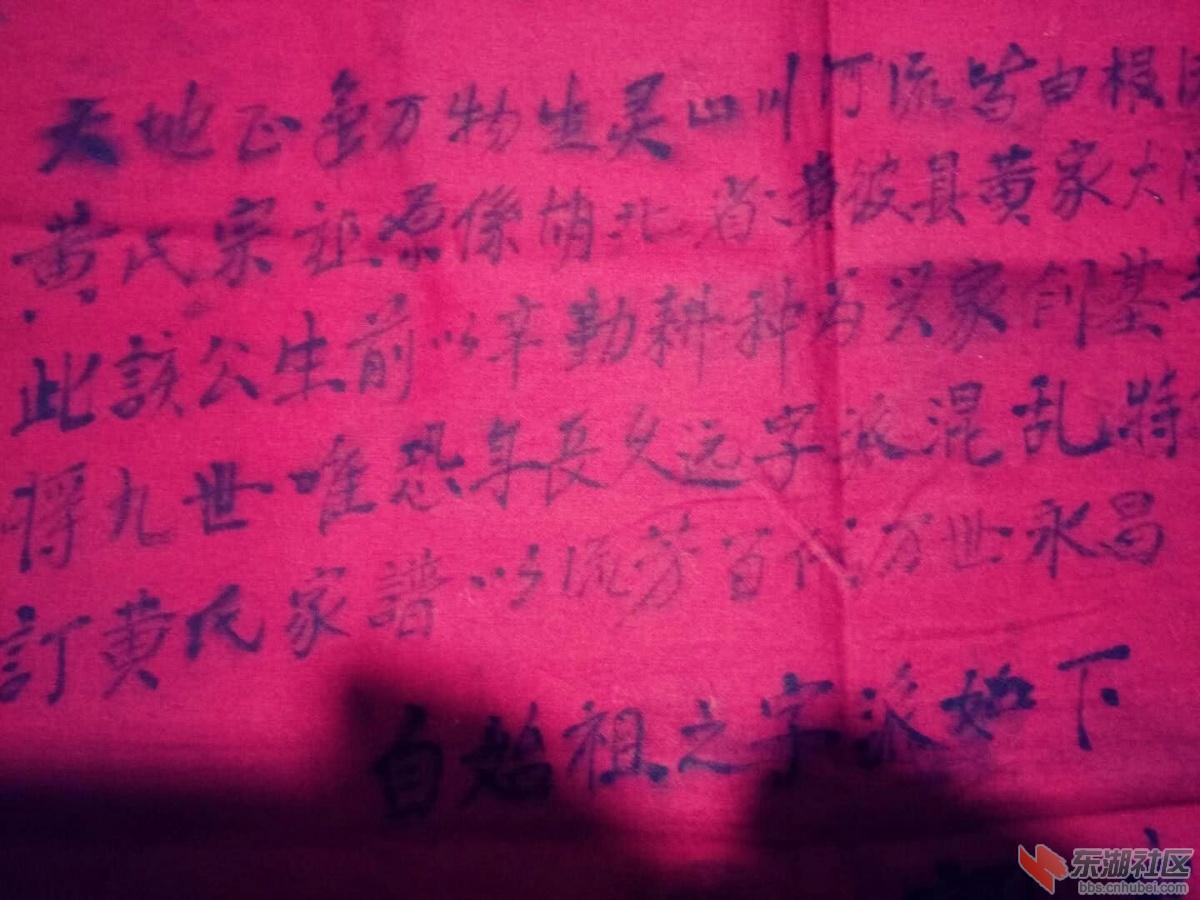 天地正气万物生灵山川河流皆由根
黄氏宗祖原係胡北省黄彼县黄家大
此該公生前以辛勤耕种为兴家创基
将九世唯恐年長久远字派混乱特
訂黄氏家譜以流芳百代万世永昌
自始祖之字派如下
东湖社区
bbs.cnhubei.com